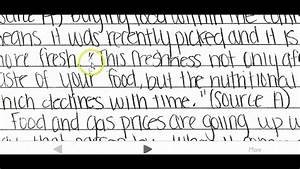 Source A) buying food within the com
means it was recently picked and it is
more fresh. "This freshness not only aff
taste of your food, but the nutritional
which declines with time." (Source A)
Food and gas prices are going up
More